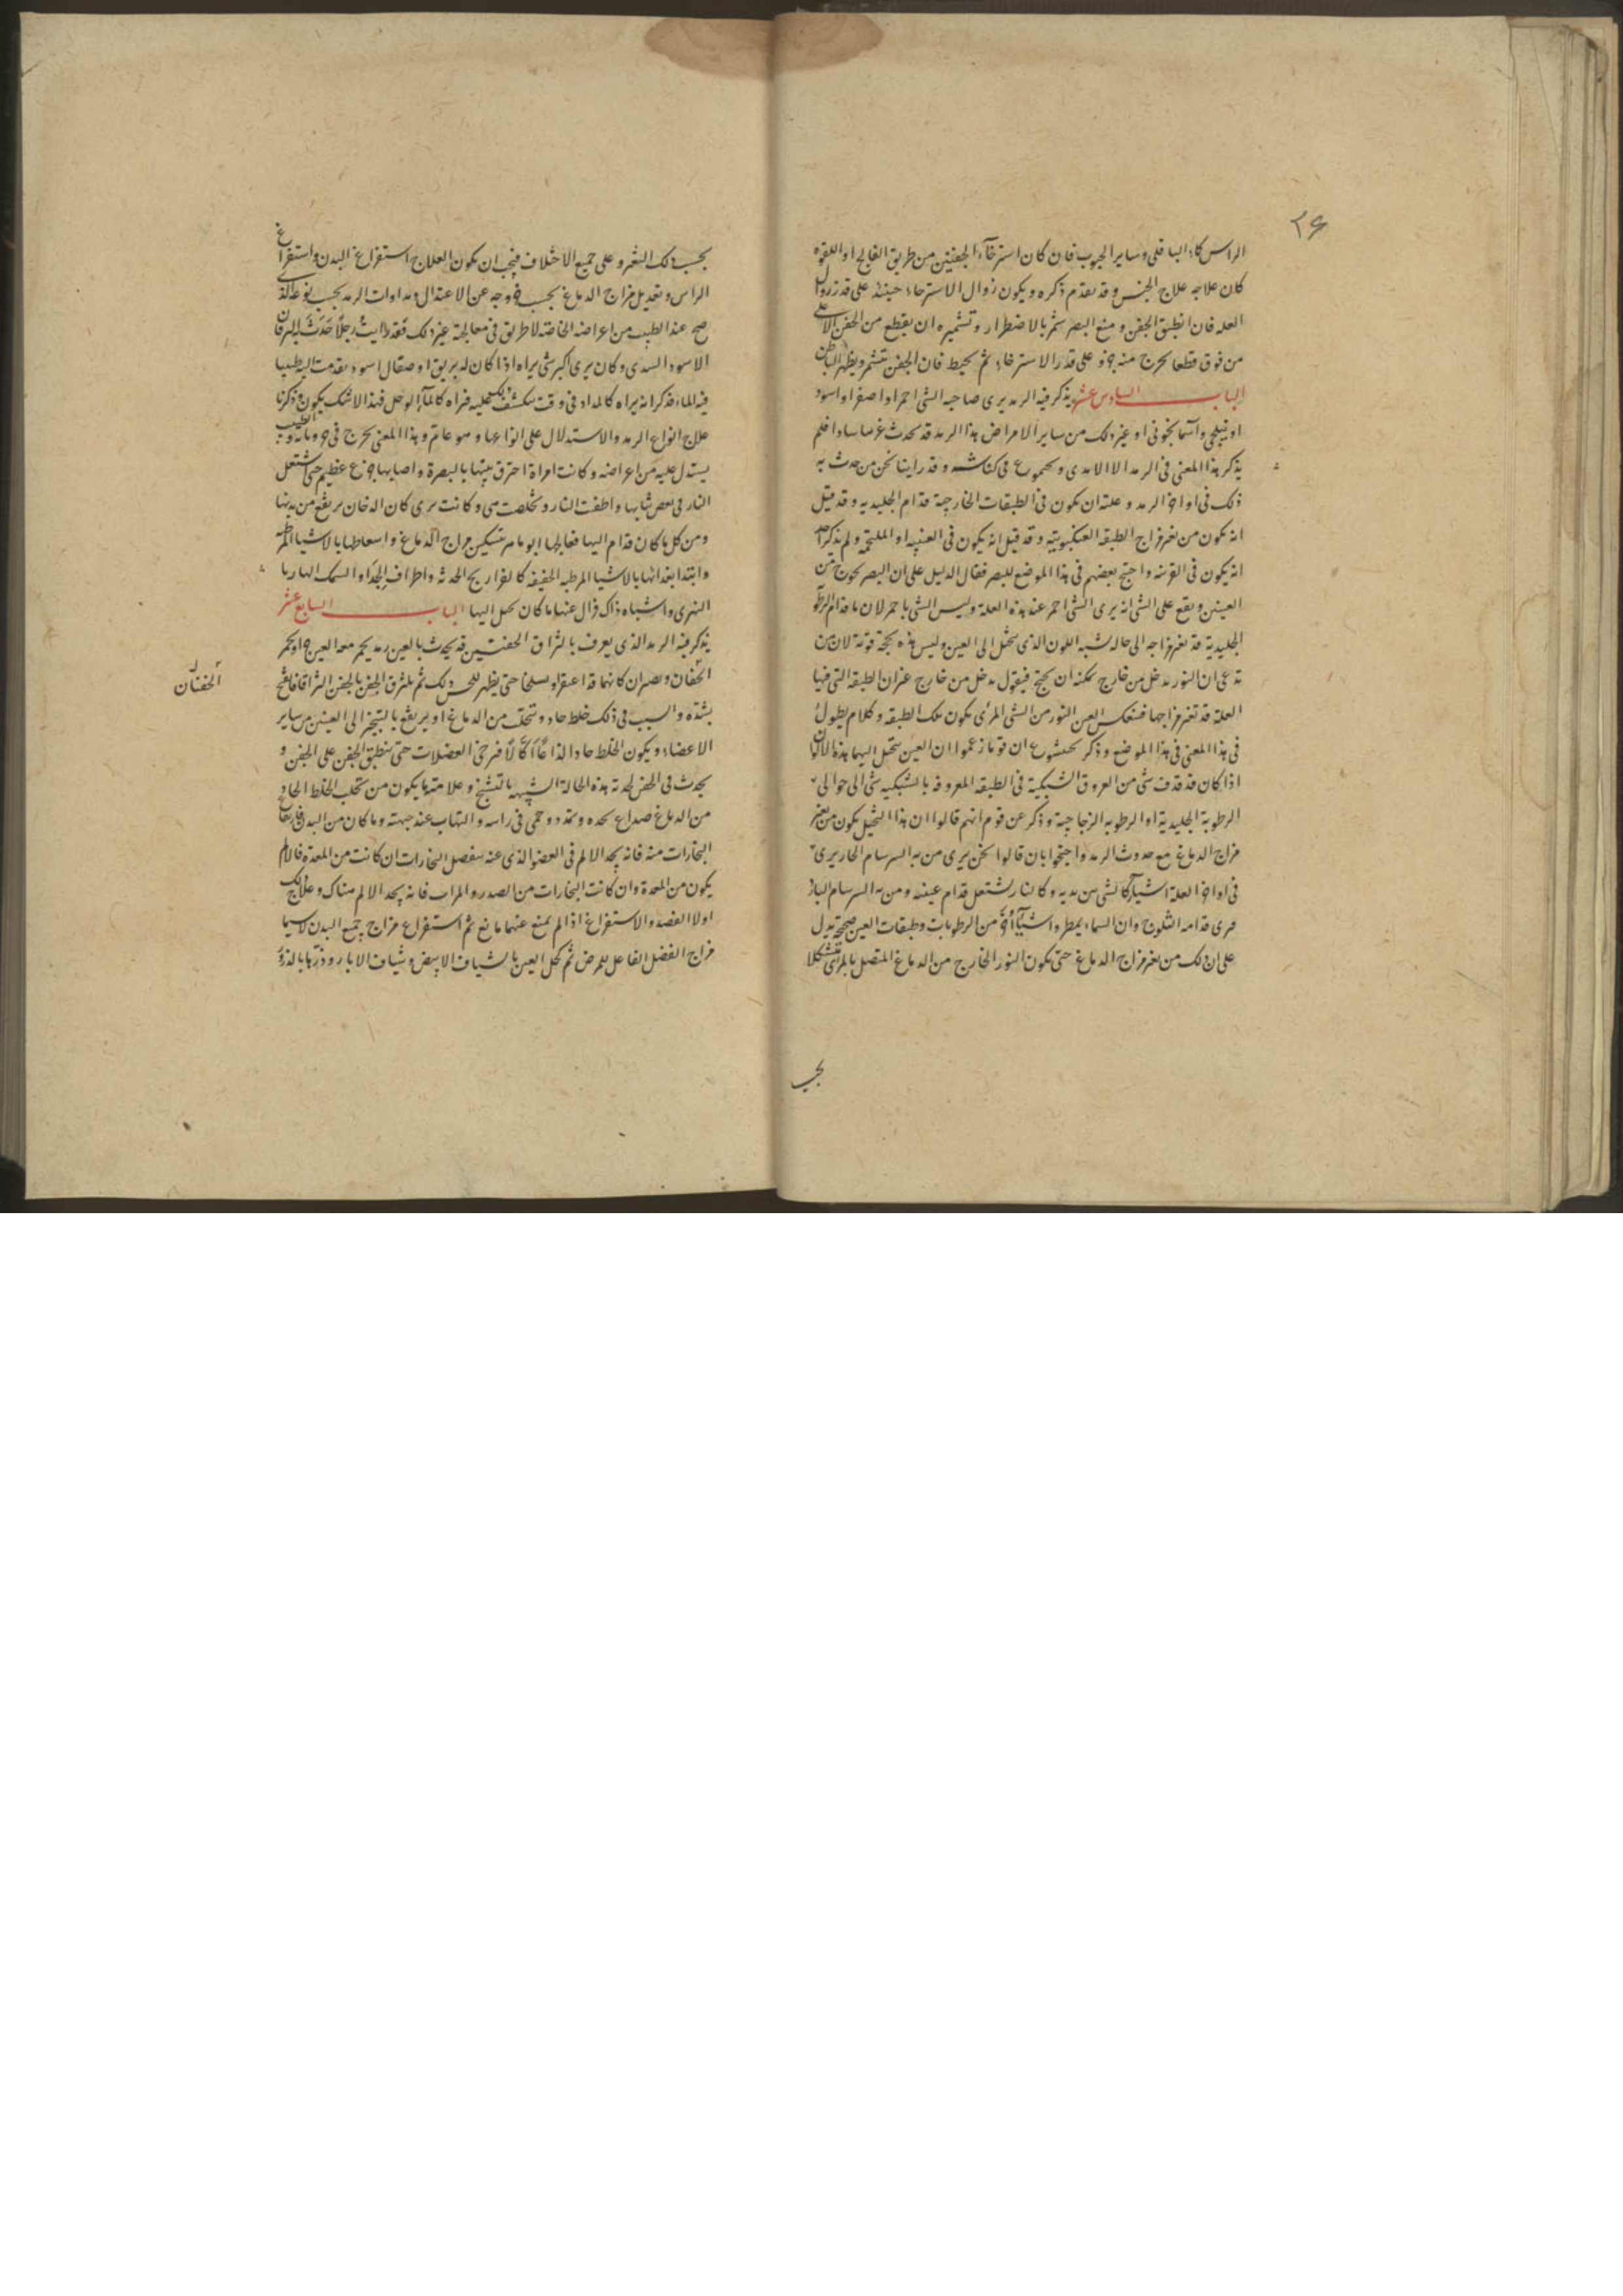 ٢۶
الراس كماء الباقلى وساير الحبوب فان كان استرخاء الجفنين من طريق الفالج او اللقوه
كان علاجه علاج الجنس وقد تقدم ذكره ويكون زوال الاسترخاء حينئذ على قدر زوال
العله فان انطبق الجفن ومنع البصر شمر بالاضطرار وتشميره ان يقطع من الجفن الاعلى
من فوق قطعا يخرج منه جزو على قدر الاسترخاء ثم يخيط فان الجفن يتشمر ويظهر الباطن
الباب السادس عشر يذكر فيه الرمد يرى صاحبه الشى احمر او اصفر او اسود
او نيلجى واسمانجونى او غير ذلك من ساير الامراض هذا الرمد قد يحدث فلم
يذكر هذا المعنى فى الرمد الا فى كناشه وقد راينا نحن من حدث به
ذلك فى اواخر الرمد وعلته ان يكون فى الطبقات الخارجة قدام الجليديه وقد قيل
انه يكون من تغير مزاج الطبقه العنكبوتيه وقد قيل انه يكون فى العنبيه او الملتحمه ولم يذكر احد
انه يكون فى القرنيه واحتج بعضهم فى هذا الموضع للبصر فقال الدليل على ان البصر يخرج من
العينين ويقع على الشى انه يرى الشى احمر عند هذه العلة وليس الشى باحمر لان ما قدام الرطوبه
الجليدية قد تغير مزاجه الى حاله تشبه اللون الذى يتخيل الى العين وليس هذه بحجة قوية لان من
يدعى ان النور يدخل من خارج يمكنه ان يحتج فيقول يدخل من خارج غير ان الطبقه التى فيها
العلة قد تغير مزاجها فينعكس الى العين النور من الشى المرئى بكون تلك الطبقه وكلام يطول
فى هذا المعنى فى هذا الموضع وذكر بختيشوع ان قوما زعموا ان العين يتخيل اليها هذه الالوان
اذا كان قد قذف شى من العروق الشبكية فى الطبقه المعروفه بالشبكيه شى الى حوالى
الرطوبة الجليدية او الرطوبه الزجاجية وذكر عن قوم انهم قالوا ان هذا التخيل يكون من تغير
مزاج الدماغ مع حدوث الرمد واحتجوا بان قالوا نحن نرى من به السرسام الحار يرى
فى اواخر العلة اشياء كالشى بين يديه وكالنار تشتعل قدام عينيه ومن به السرسام البارد
يرى قدامه الثلوج وان السماء يمطر واشياء اخر من الرطوبات وطبقات العين صحيحة يدل
على ان ذلك من تغير مزاج الدماغ حتى يكون النور الخارج من الدماغ المتصل بالمرئى متشكلا
بحسب
بحسب ذلك التغير وعلى جميع الاختلاف فيجب ان يكون العلاج استفراغ البدن واستفراغ
الراس وتعديل مزاج الدماغ بحسب خروجه عن الاعتدال ومداوات الرمد بحسب نوعه الذى
صح عند الطبيب من اعراضه الخاصة لا طريق فى معالجته غير ذلك فقد رايت رجلا حدث له اليرقان
الاسود السددى وكان يرى اكثر شى يراه اذا كان له بريق او صقال اسود
فيه الماء فذكر انه يراه كالمداد فى وقت ينكشف عليه فيراه كالماء الوحل فهذا لا شك يكون وذكرنا
علاج انواع الرمد والاستدلال على انواعها وهو عام وهذا المعنى يخرج
يستدل عليه من اعراضه وكانت امراة احترق بيتها بالبصرة واصابها جزع عظيم حتى اشتعل
النار فى بعض ثيابها واطفت النار وتخلصت هى وكانت ترى كان الدخان يرتفع من يديها
ومن كل ما كان قدام اليها فعالجها ابو ماهر بتسكين مزاج الدماغ واسعاطها بالاشياء المرطبه
وابتدا بغذائها بالاشيا المرطبه الخفيفه كالفراريج الحدثه واطراف الجداء والسمك الهاربا
النهرى واشباه ذاك فزال عنها ما كان يخيل اليها الباب السابع عشر
يذكر فيه الرمد الذى يعرف بالتزاق الجفنين قد يحدث بالعين رمد يحمر معه العين
الجفنان ويصيران كانهما قد حتى يظهر للحس ذلك ثم يلتزق الجفن بالجفن التزاقا
بشدة والسبب فى ذلك خلط حاد يتحلب من الدماغ او يرتفع بالتبخير الى العينين من ساير
الاعضاء ويكون الخلط حادا لذاعا اكالا فيرخى العضلات حتى ينطبق الجفن على الجفن و
يحدث فى الجفن لحدته هذه الحالة الشبيهه بالتشنج وعلامته ما يكون من تحلب الخلط الحاد
من الدماغ صداع يجده وتمدد وحمى فى راسه والتهاب عند جبهته وما كان من البدن فارتفاع
البخارات منه فانه يجد الالم فى العضو الذى عنه ينفصل البخارات ان كانت من المعدة فالالم
يكون من المعدة وان كانت البخارات من الصدر والمراب فانه يجد الالم هناك وعلاج ذلك
اولا الفصد والاستفراغ اذا لم يمنع عنهما مانع ثم استفراغ مزاج جميع البدن لا سيما
مزاج الفضل الفاعل للمرض ثم كحل العين بالشياف الابيض وشياف الابار وذرها بالذرور
الجفنان